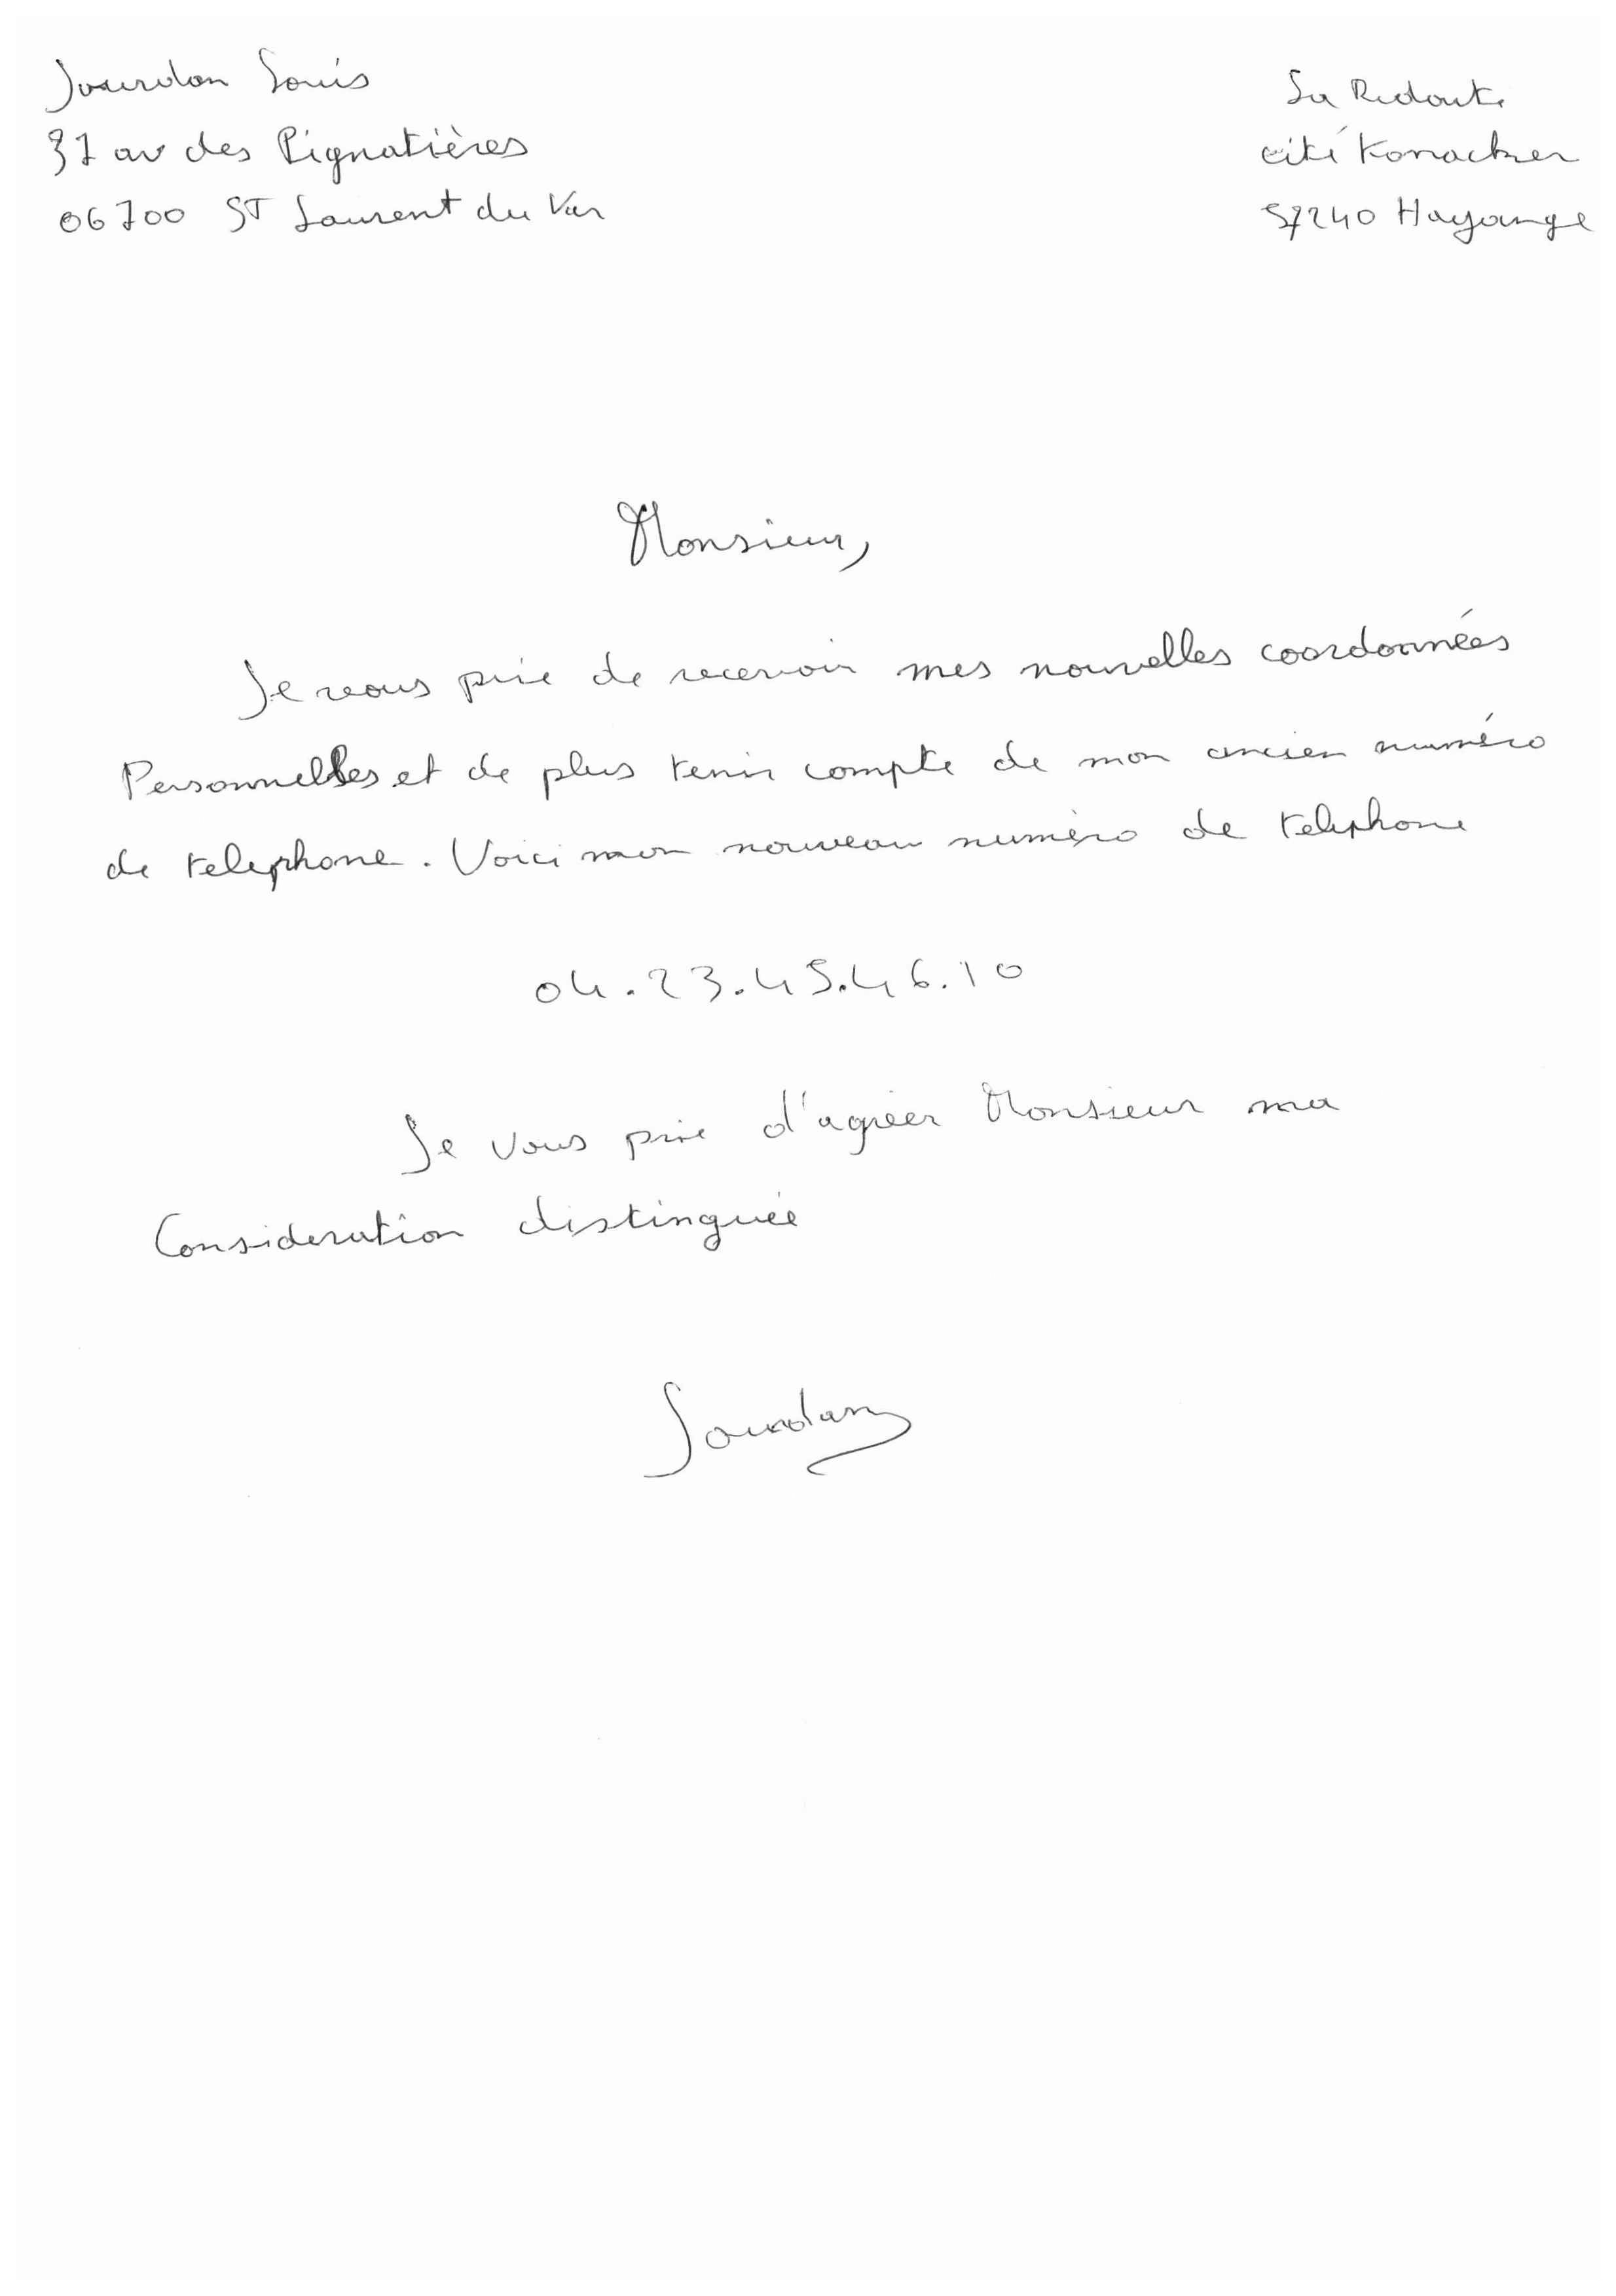 Jourdan Louis
37 av des Pignatières
06700 ST Laurent du Var
La Redoute
cité Konacker
57240 Hayange
Monsieur,
Je vous prie de recevoir mes nouvelles coordonnées
Personnelles et de plus tenir compte de mon ancien numéro
de telephone. Voici mon nouveau numéro de telephone
04.23.45.46.10
Je vous prie d'agréer Monsieur ma
Consideration distinguée
Jourdan